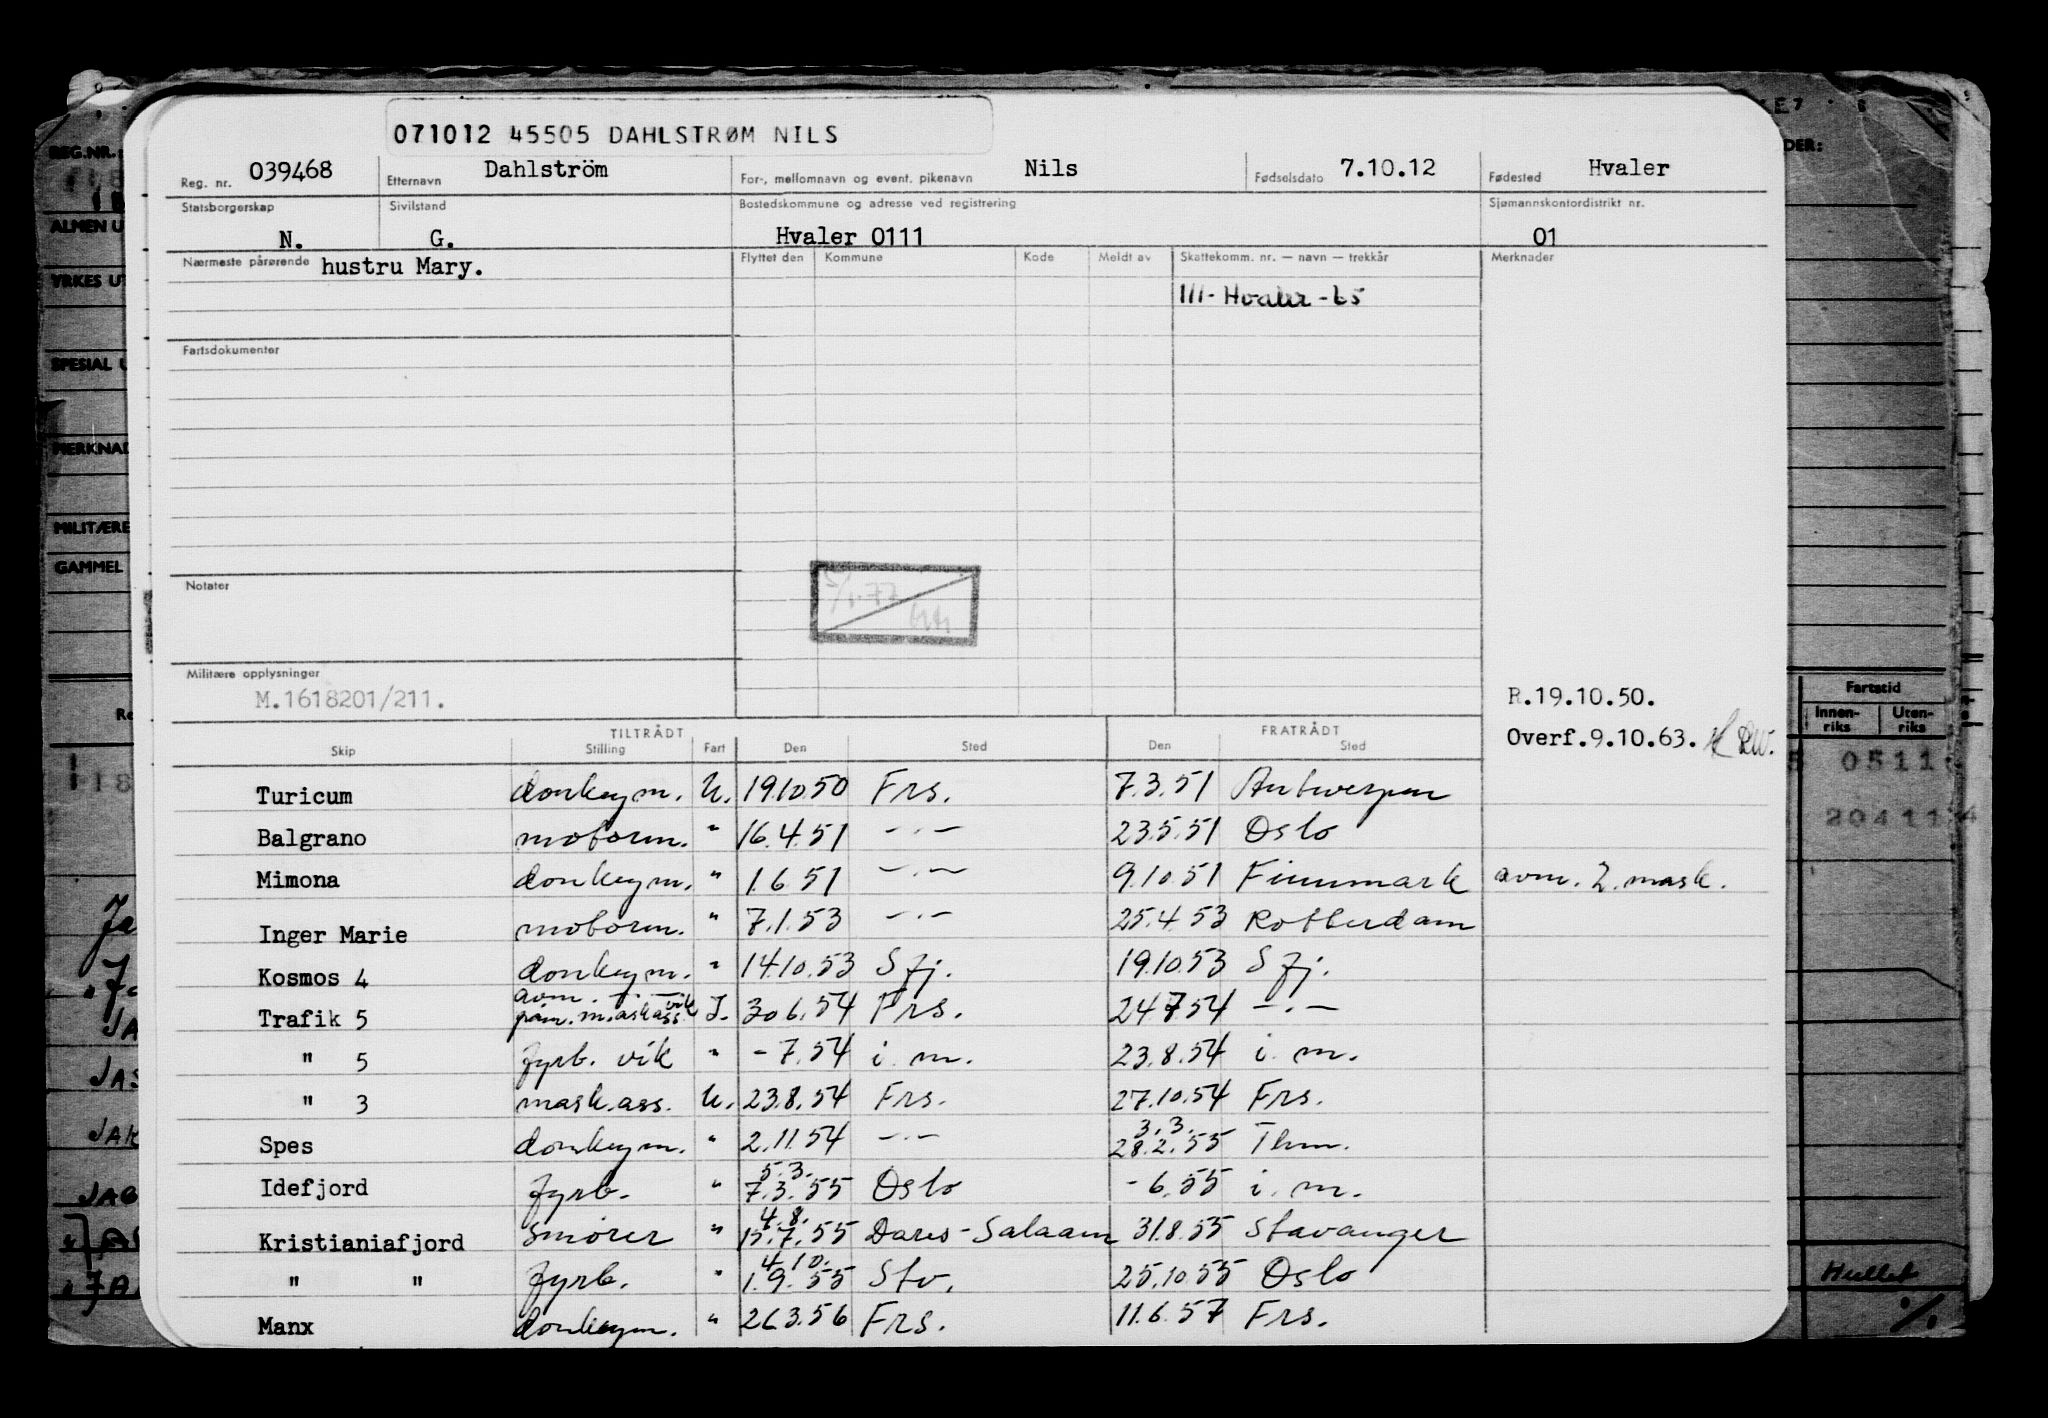 071012 45505 DAHLSTRØM NILS
Reg. nr. 039468 Etternavn Dahlström For-, mellomnavn og event. pikenavn Nils Fødselsdato 7.10.12 Fødested Hvaler
Statsborgerskap N. Sivilstand G. Bostedskommune og adresse ved registrering Hvaler 0111 Sjømannskontordistrikt nr. 01
Nærmeste pårørende hustru Mary. Flyttet den Kommune Kode Meldt av Skattekomm. nr. — navn — trekkår Merknader
111- Hvaler -65
Fartsdokumenter
Notater
Militære opplysninger
M.1618201/211.
R.19.10.50.
Overf.9.10.63.
TILTRÅDT FRATRÅDT
Skip Stilling Fart Den Sted Den Sted
Turicum donkeym. U. 19.10.50 Frs. 7.3.51 Antwerpen
Balgrano motorm. " 16.4.51 -.- 23.5.51 Oslo
Mimona donkeym. " 1.6.51 -.- 9.10.51 Finnmark avm. 2. mask.
Inger Marie motorm. " 7.1.53 -.- 25.4.53 Rotterdam
Kosmos 4 donkeym. " 14.10.53 Sfj. 19.10.53 Sfj.
avm. -.- vik
Trafik 5 påm. m.askass. I. 30.6.54 Frs. 24.7.54 -.-
" 5 fyrb. vik " - 7.54 i. m. 23.8.54 i. m.
" 3 mask.ass. U. 23.8.54 Frs. 27.10.54 Frs.
3.3.
Spes donkeym. " 2.11.54 -.- 28.2.55 Thm.
5.3.
Idefjord fyrb. " 7.3.55 Oslo - 6.55 i. m.
4.8.
Kristianiafjord Smører " 15.7.55 Dares-Salaam 31.8.55 Stavanger
4.10.
" " fyrb. " 1.9.55 Stv. 25.10.55 Oslo
Manx donkeym. " 26.3.56 Frs. 11.6.57 Frs.
REG.NR.
ALMEN U
YRKES UT
SPESIAL U
MERKNAD
MILITÆRE
GAMMEL
DER:
Fartstid
Innen-riks Uten-riks
0511
20411
JAS
JAK
Hullet